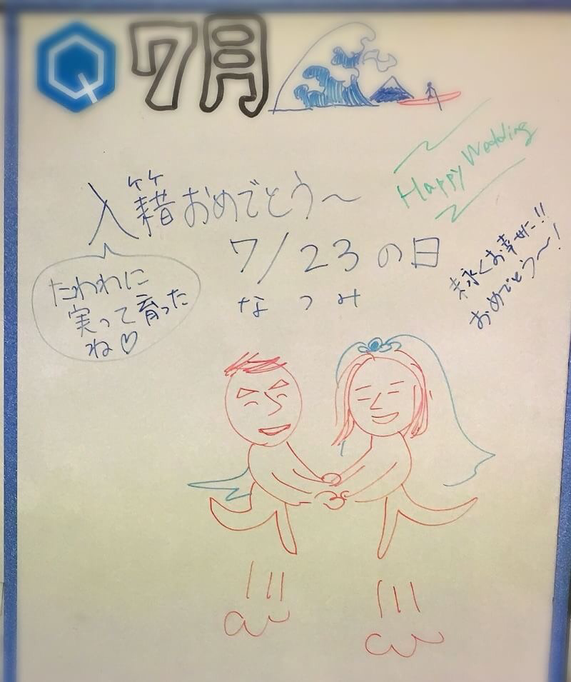 Q 7月
入籍おめでとう〜
Happy Wedding
7/23の日
なつみ
末永くお幸せに!!
おめでとう〜!
たわわに
実って育った
ね♡